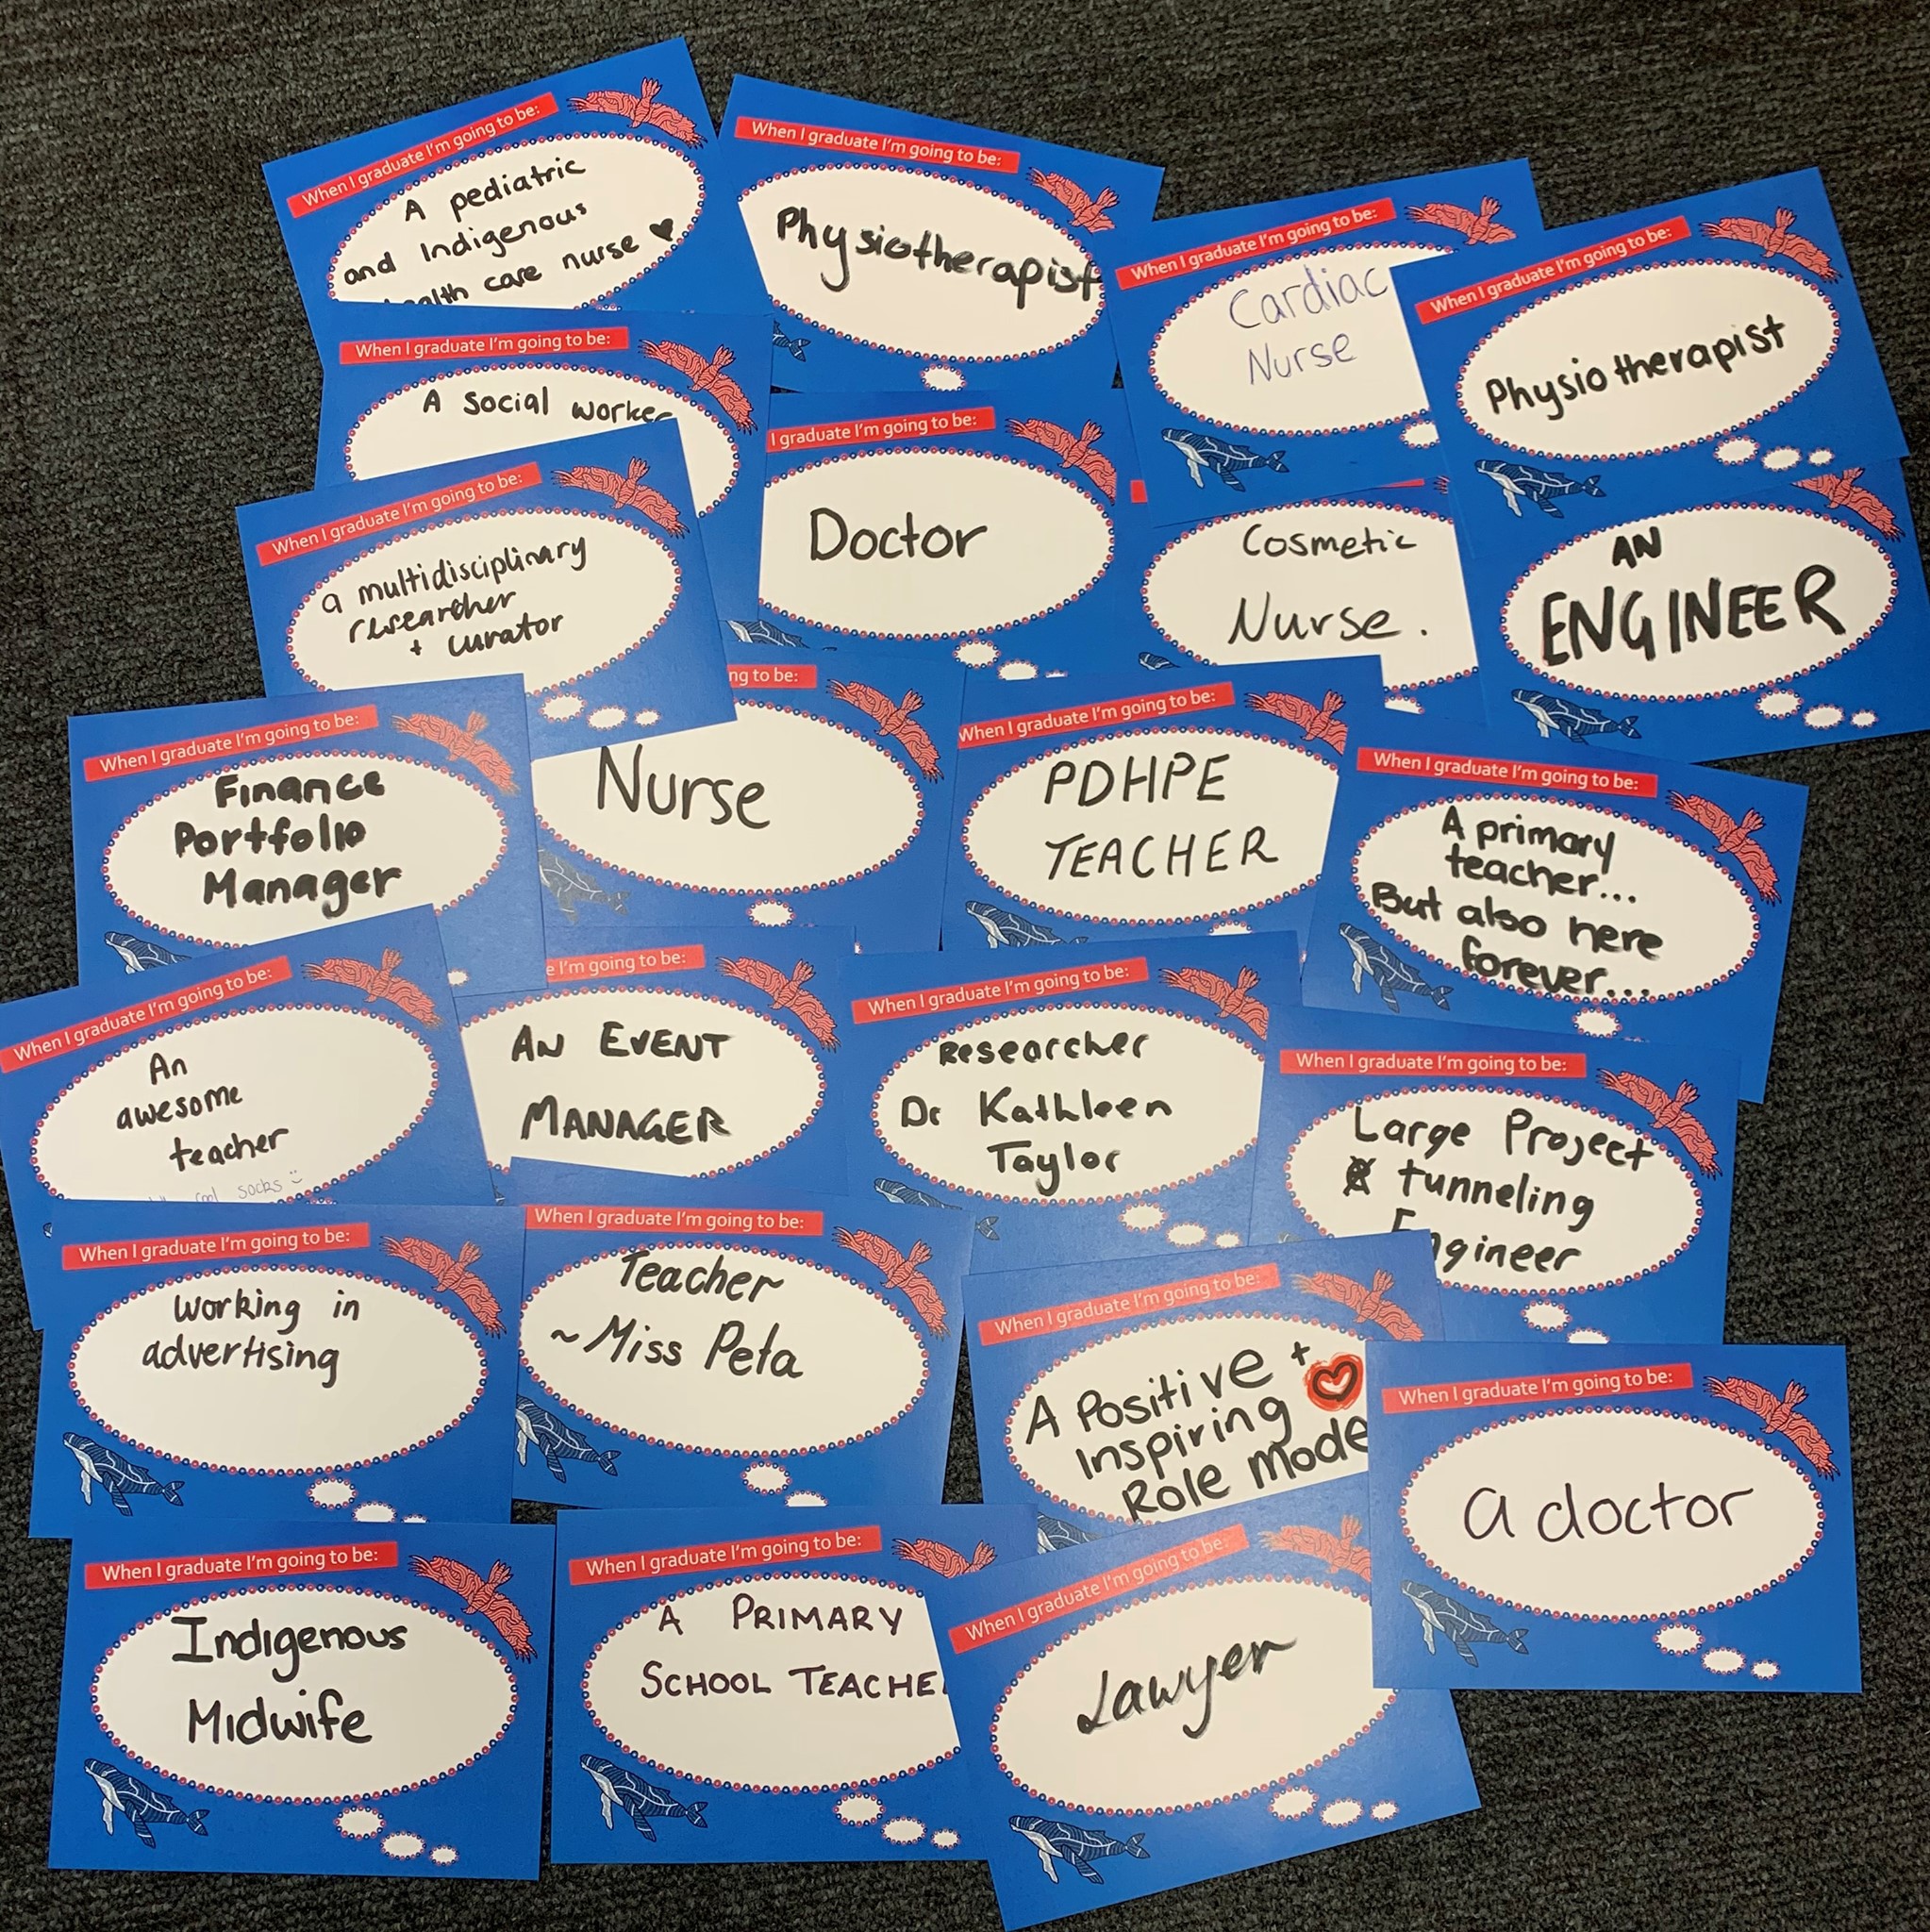 When I graduate I'm going to be:
A pediatric
and Indigenous
health care nurse ♥
When I graduate I'm going to be:
Physiotherapist
When I graduate I'm going to be:
Cardiac
Nurse
When I graduate I'm going to be:
Physiotherapist
When I graduate I'm going to be:
A social worker
I graduate I'm going to be:
Doctor
Cosmetic
Nurse.
AN
ENGINEER
When I graduate I'm going to be:
a multidisciplinary
researcher
+ curator
ng to be:
Nurse
When I graduate I'm going to be:
PDHPE
TEACHER
When I graduate I'm going to be:
A primary
teacher...
But also here
forever...
When I graduate I'm going to be:
Finance
Portfolio
Manager
When I graduate I'm going to be:
An
awesome
teacher
cool socks
e I'm going to be:
AN EVENT
MANAGER
When I graduate I'm going to be:
Researcher
Dr Kathleen
Taylor
When I graduate I'm going to be:
Large Project
tunneling
Engineer
When I graduate I'm going to be:
working in
advertising
When I graduate I'm going to be:
Teacher
~Miss Peta
When I graduate I'm going to be:
A Positive +
Inspiring
Role Mode
When I graduate I'm going to be:
a doctor
When I graduate I'm going to be:
Indigenous
Midwife
When I graduate I'm going to be:
A PRIMARY
SCHOOL TEACHE
When I graduate I'm going to be:
Lawyer